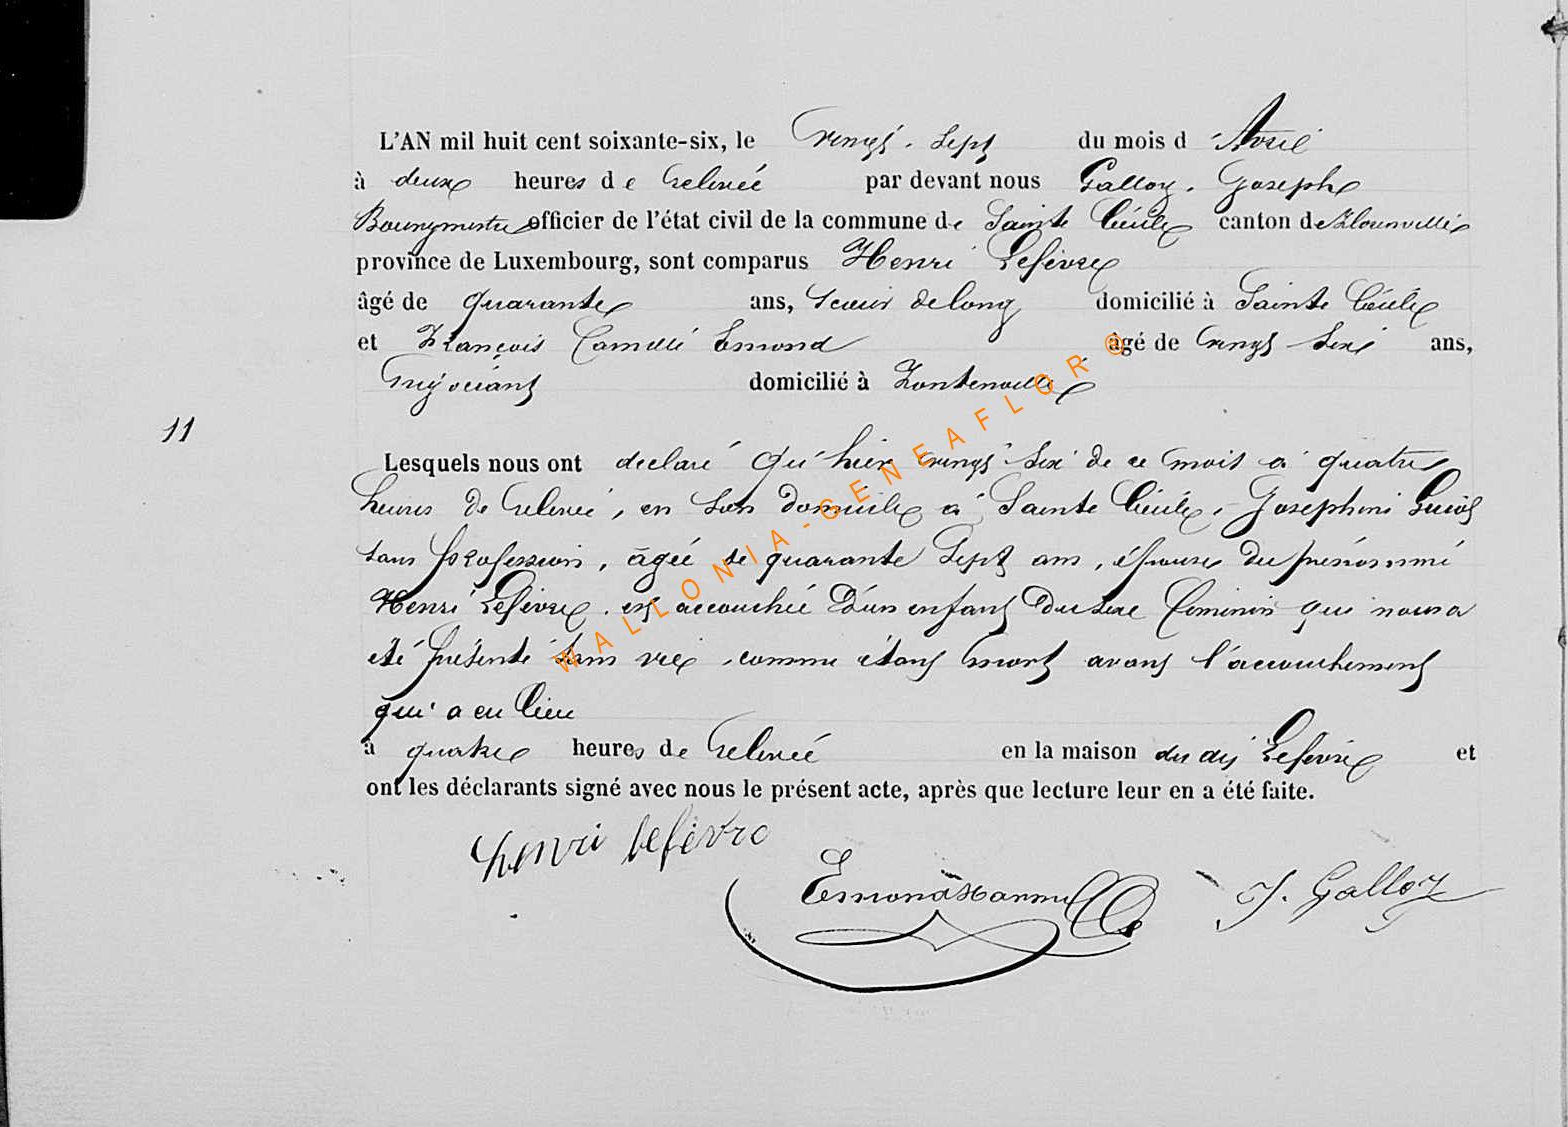 L'AN mil huit cent soixante-six, le vingt-sept du mois d'Avril
à deux heures de relevée par devant nous Galloy, Joseph
Bourgmestre officier de l'état civil de la commune de Sainte Cécile canton de Florenville
province de Luxembourg, sont comparus Henri Lefèvre
âgé de quarante ans, scieur de long domicilié à Sainte Cécile
et François Camille Emond âgé de vingt six ans,
Négociant domicilié à Fontenoille
11
Lesquels nous ont déclaré qu'hier vingt six de ce mois à quatre
heures de relevée, en son domicile à Sainte Cécile, Joséphine
sans profession, agée de quarante sept ans, épouse du prénommé
Henri Lefèvre, est accouchée d'un enfant du sexe féminin qui nous a
été présenté sans vie, comme étant mort avant l'accouchement
qui a eu lieu
à quatre heures de relevée en la maison du dit Lefèvre et
ont les déclarants signé avec nous le présent acte, après que lecture leur en a été faite.
henri lefèvre
Emond J. Galloy
WALLONIA-GENEAFLOR ©